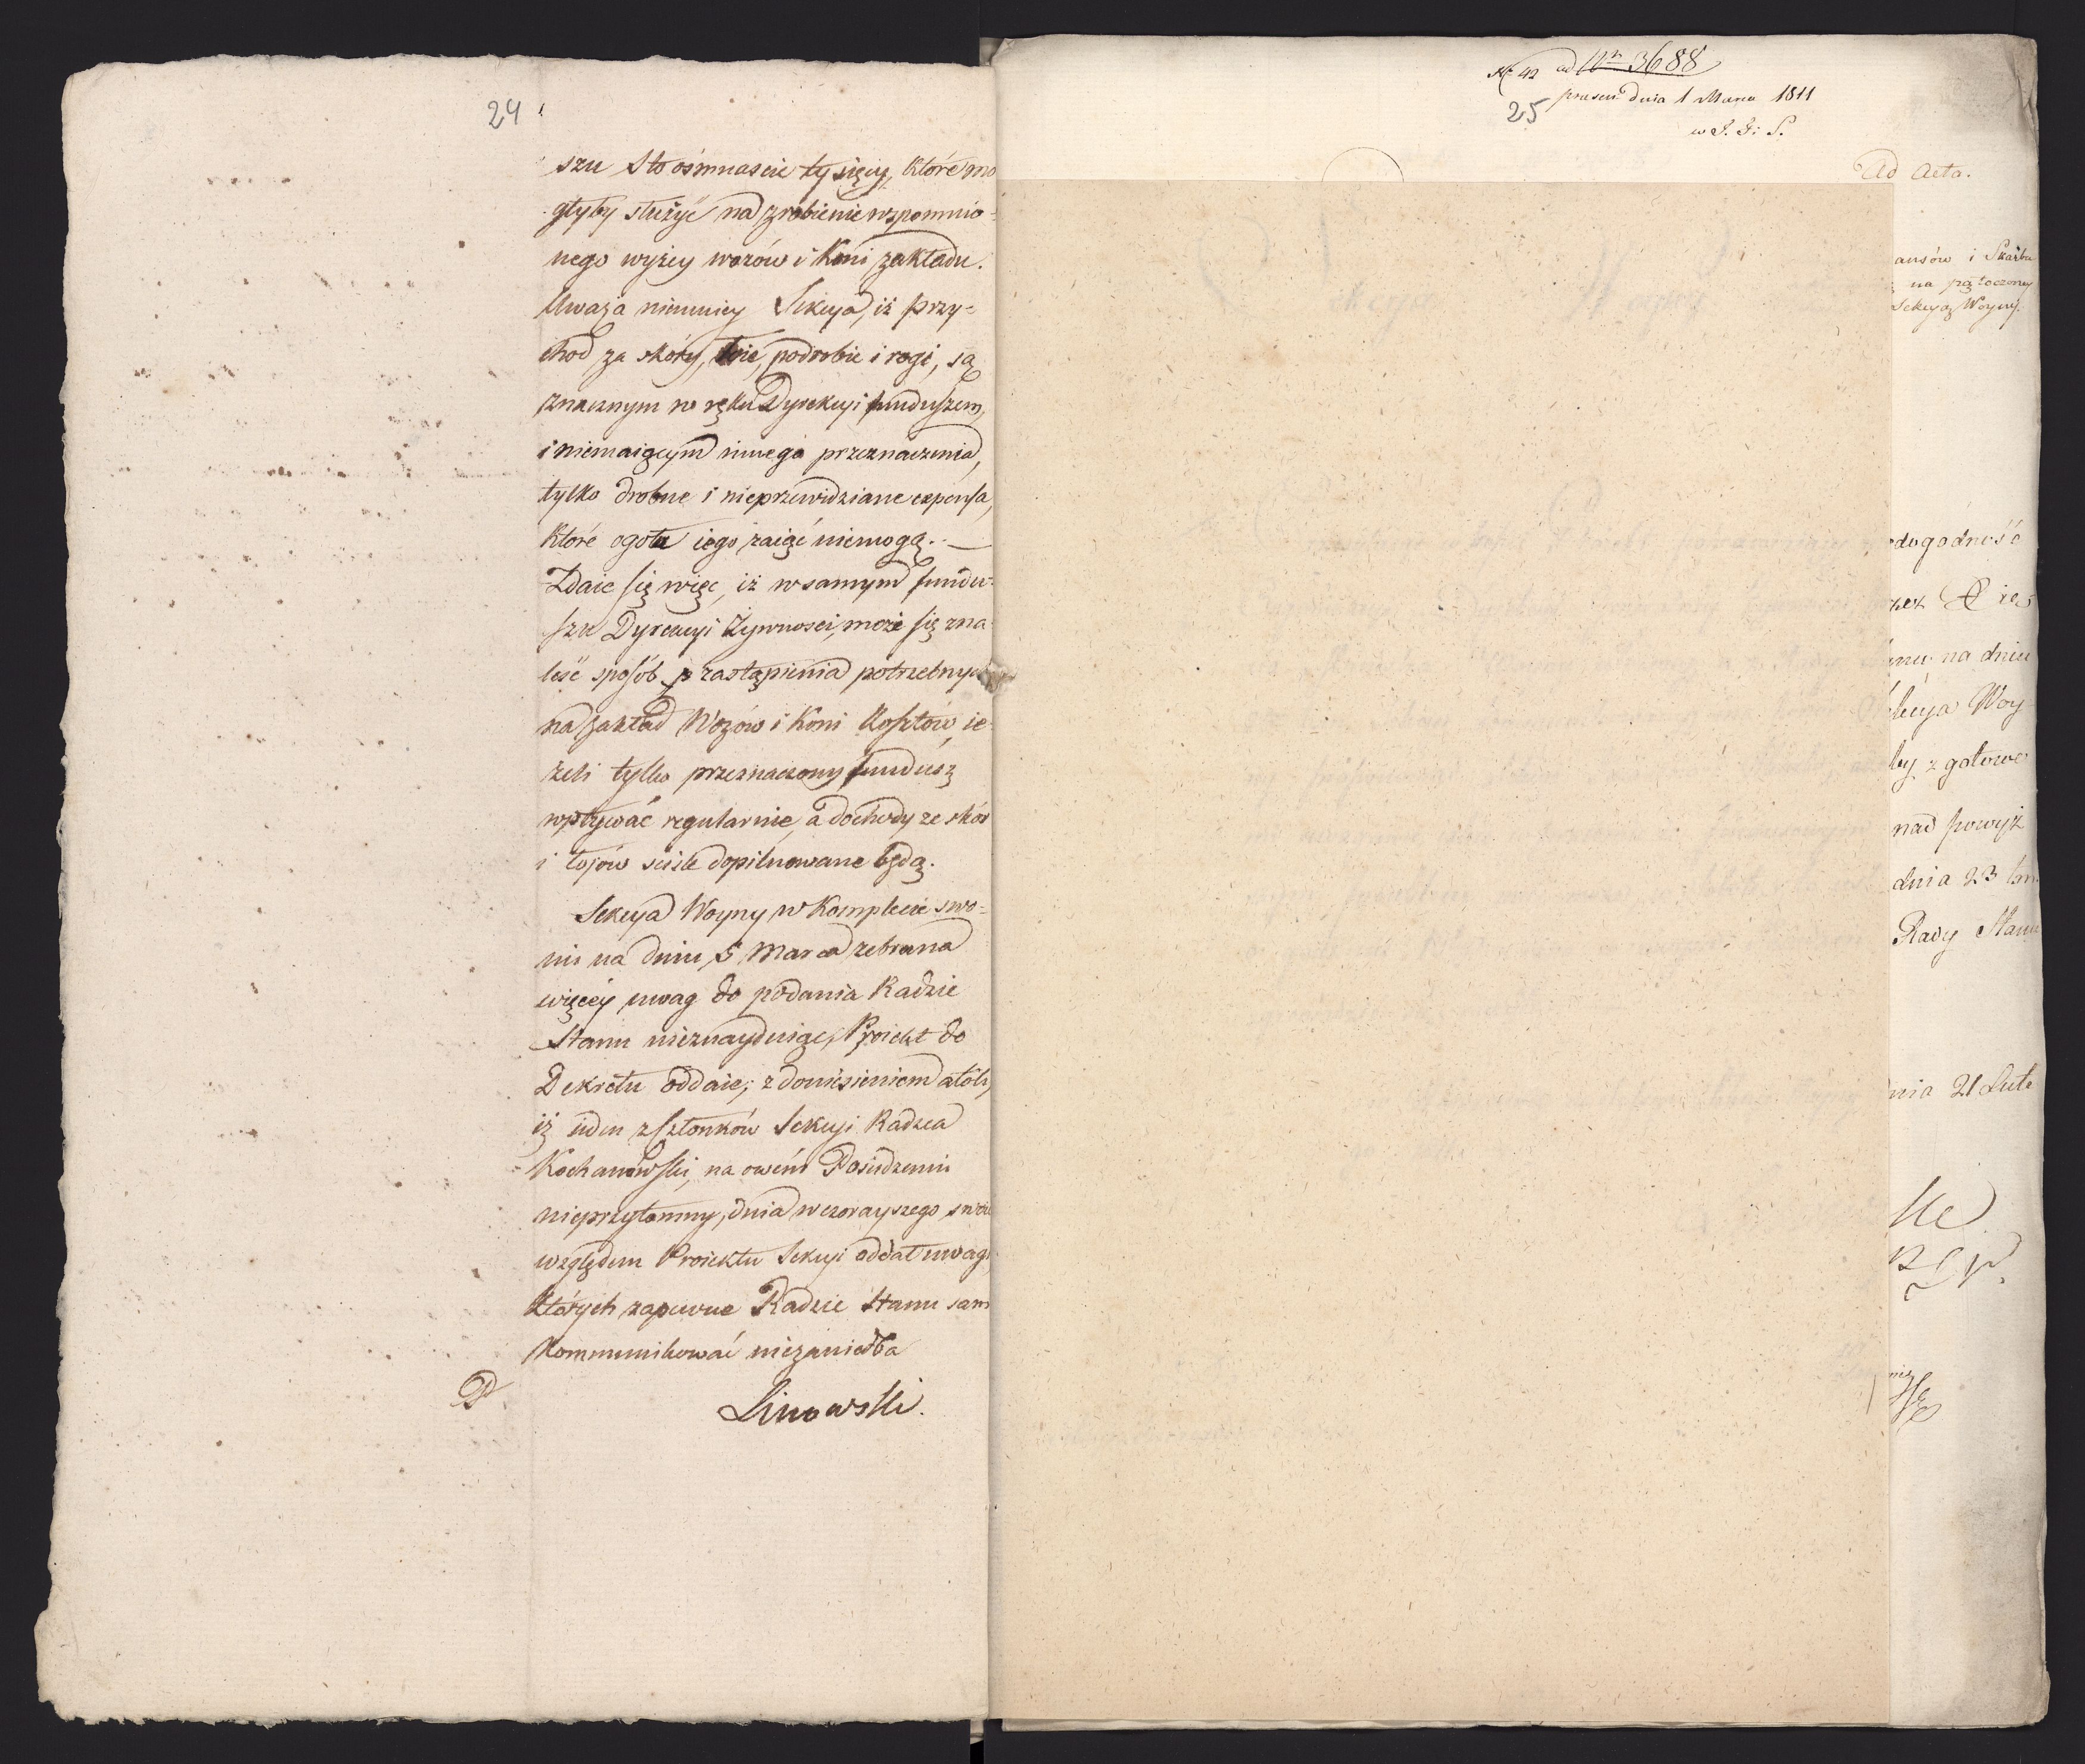 24
szu Sto ośmnaście tysięcy, które mo
głyby służyć na zrobienie wspomnio=
nego wyżey wozów i Koni zakładu.
Uważa niemniey Sekcya, iż przy=
chod za skóry, łoie, podrobie i rogi, są
znacznym w ręku Dyrekcyi funduszem,
i niemaiącym innego przeznaczenia,
tylko drobne i nieprzewidziane expensa,
które ogołu iego zaiąć niemogą. —
Zdaie się więc, iż w samym fundu=
szu Dyrekcyi Żywnosci, może się zna=
leść sposób zastąpienia potrzebnych
na zakład Wozów i Koni Kosztów, ie=
żeli tylko przeznaczony fundusz
wpływać regularnie, a dochody ze skór
i łojów ściśle dopilnowane będą.
Sekcya Woyny w Komplecie swo=
im na dniu 5 Marca zebrana
więcéy uwag do podania Radzie
Stanu nieznayduiąc, Proiekt do
Dekretu oddaie; z doniesieniem atoli,
iż ieden z Członków Sekcyi Radzca
Kochanowski, na owém Posiedzeniu
nieprzytomny, dnia wczorayszego swoie
względem Proiektu Sekcyi oddał uwagi
których zapewne Radzie Stanu sam
kommunikować niezaniedba
Linowski.
No 42 ad Nr 3688
25
praesen dnia 1 Marca 1811
w S. G: S.
Ad Acta.
ansów i Skarbu
na załączony
Sekcyą Woyny.
dogodność
na dniu
kcya Woy
by z gotowe
nad powyż
dnia 23 b.m.
Rady Stanu
nia 21 Lute